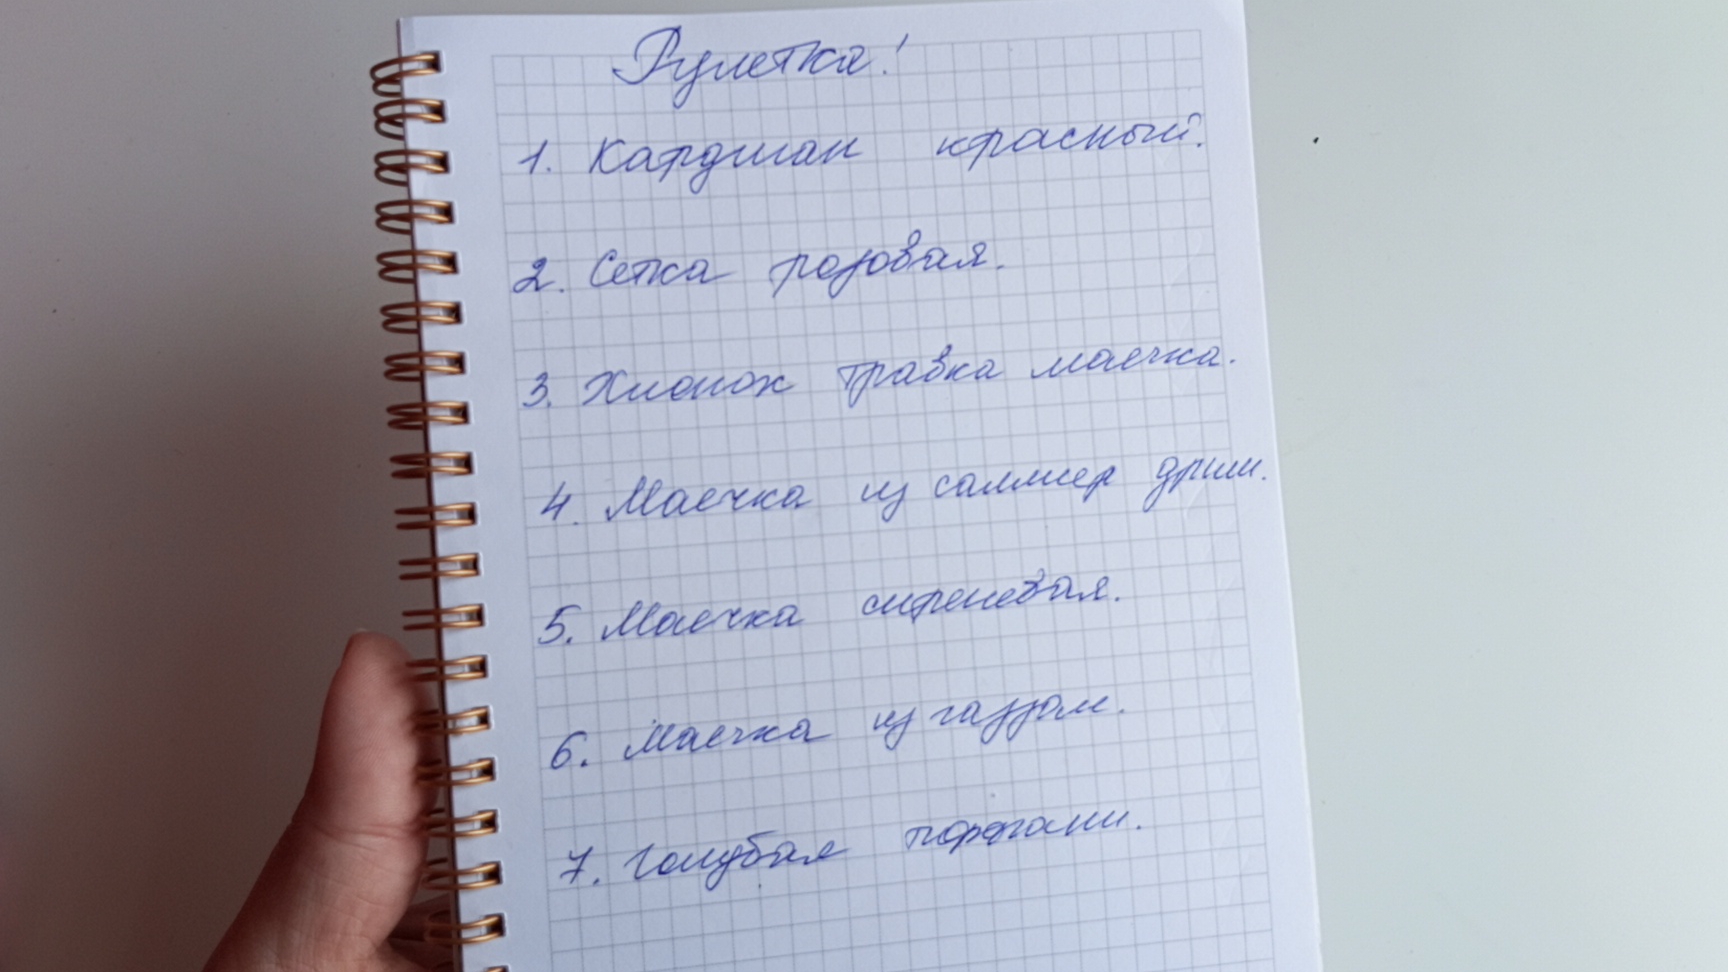 Рулетка!
1. Кардиган красный.
2. Сетка розовая.
3. Хлопок травка маечка.
4. Маечка из саммер дрим.
5. Маечка сиреневая.
6. Маечка из газзал.
7. Голубая